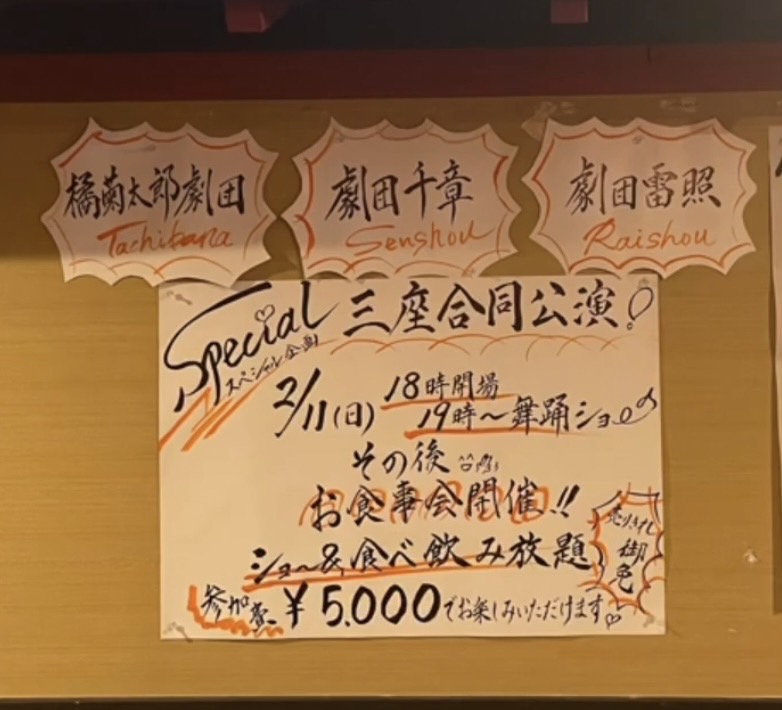 橘菊太郎劇団
Tachibana
劇団千章
Senshou
劇団雷照
Raishou
Special
スペシャル企画
三座合同公演!
2/11(日)
18時開場
19時〜舞踊ショー
その後
お食事会開催!!
ショー&食べ飲み放題
売り切れ
御免
参加費
¥5.000でお楽しみいただけます